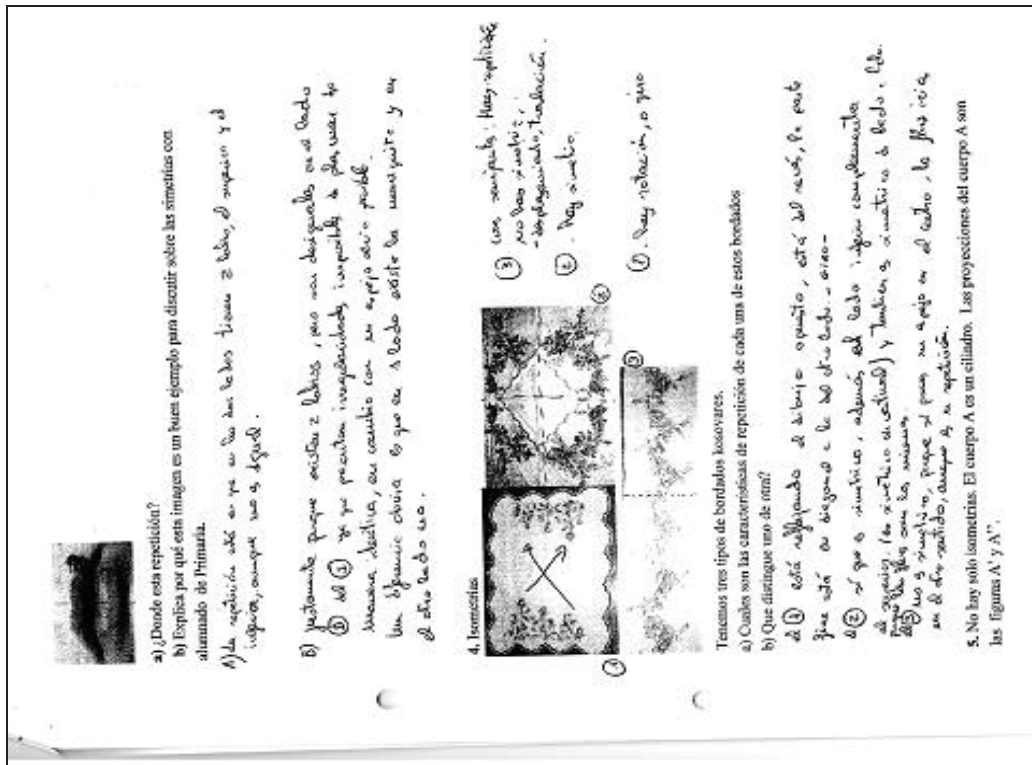 a) ¿Donde esta repetición?
b) Explica por qué esta imagen es un buen ejemplo para discutir sobre las simetrías con
alumnado de Primaria.
A) La repetición está en que en los dos lados tienen 2 lados, el superior y el
inferior, aunque no es igual.
B) justamente porque existen 2 lados, pero son desiguales en el lado
ya que presentan irregularidades imposibles de plasmar de
manera idéntica, en cambio con un espejo sería posible.
en el lado existe la
el otro lado no.
4. Isometrías
③ Los : Hay repetición,
no hay simetría,
- desplazamiento, traslación.
② . Hay simetría.
① . Hay rotación, o giro
①
②
③
Tenemos tres tipos de bordados kosovares.
a) Cuales son las características de repetición de cada una de estos bordados
b) Que distingue uno de otra?
el ① está reflejando el dibujo opuesto, está del revés, la parte
está en diagonal a la del otro lado. - giro -
el ② sí que es simétrico, además el lado inferior complementa
al superior. y también es simétrico de lado a lado.
porque las flores son las mismas
el ③ no es simétrico, porque si pones un espejo en el centro, la flor iría
en el otro sentido, aunque es repetición.
5. No hay solo isometrías. El cuerpo A es un cilindro. Las proyecciones del cuerpo A son
las figuras A' y A''.